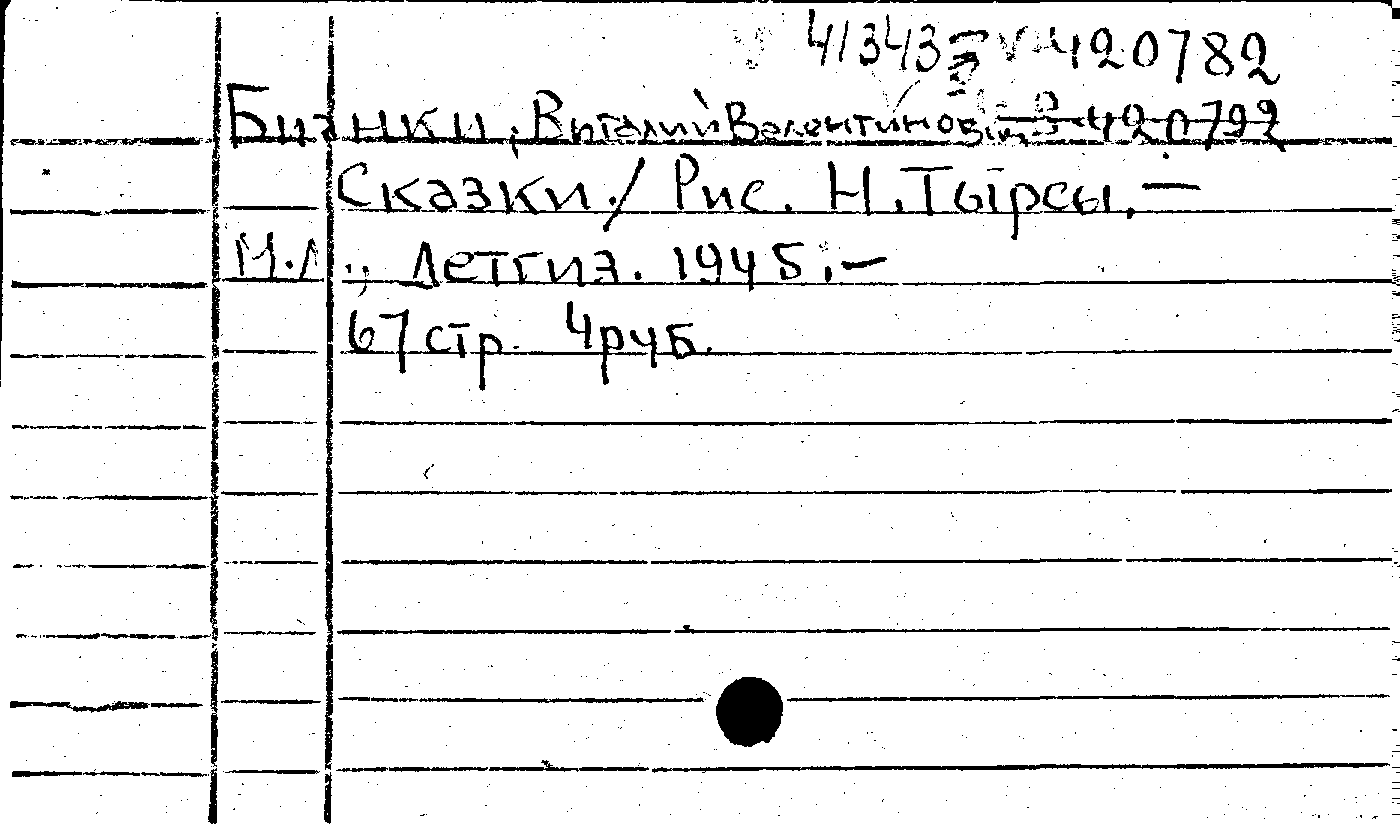 41343 420782
Бианки, Виталий Валентинович 420792
Сказки./ Рис. Н.Тырсы,—
М.Л., Детгиз. 1945.—
67 стр. 4 руб.